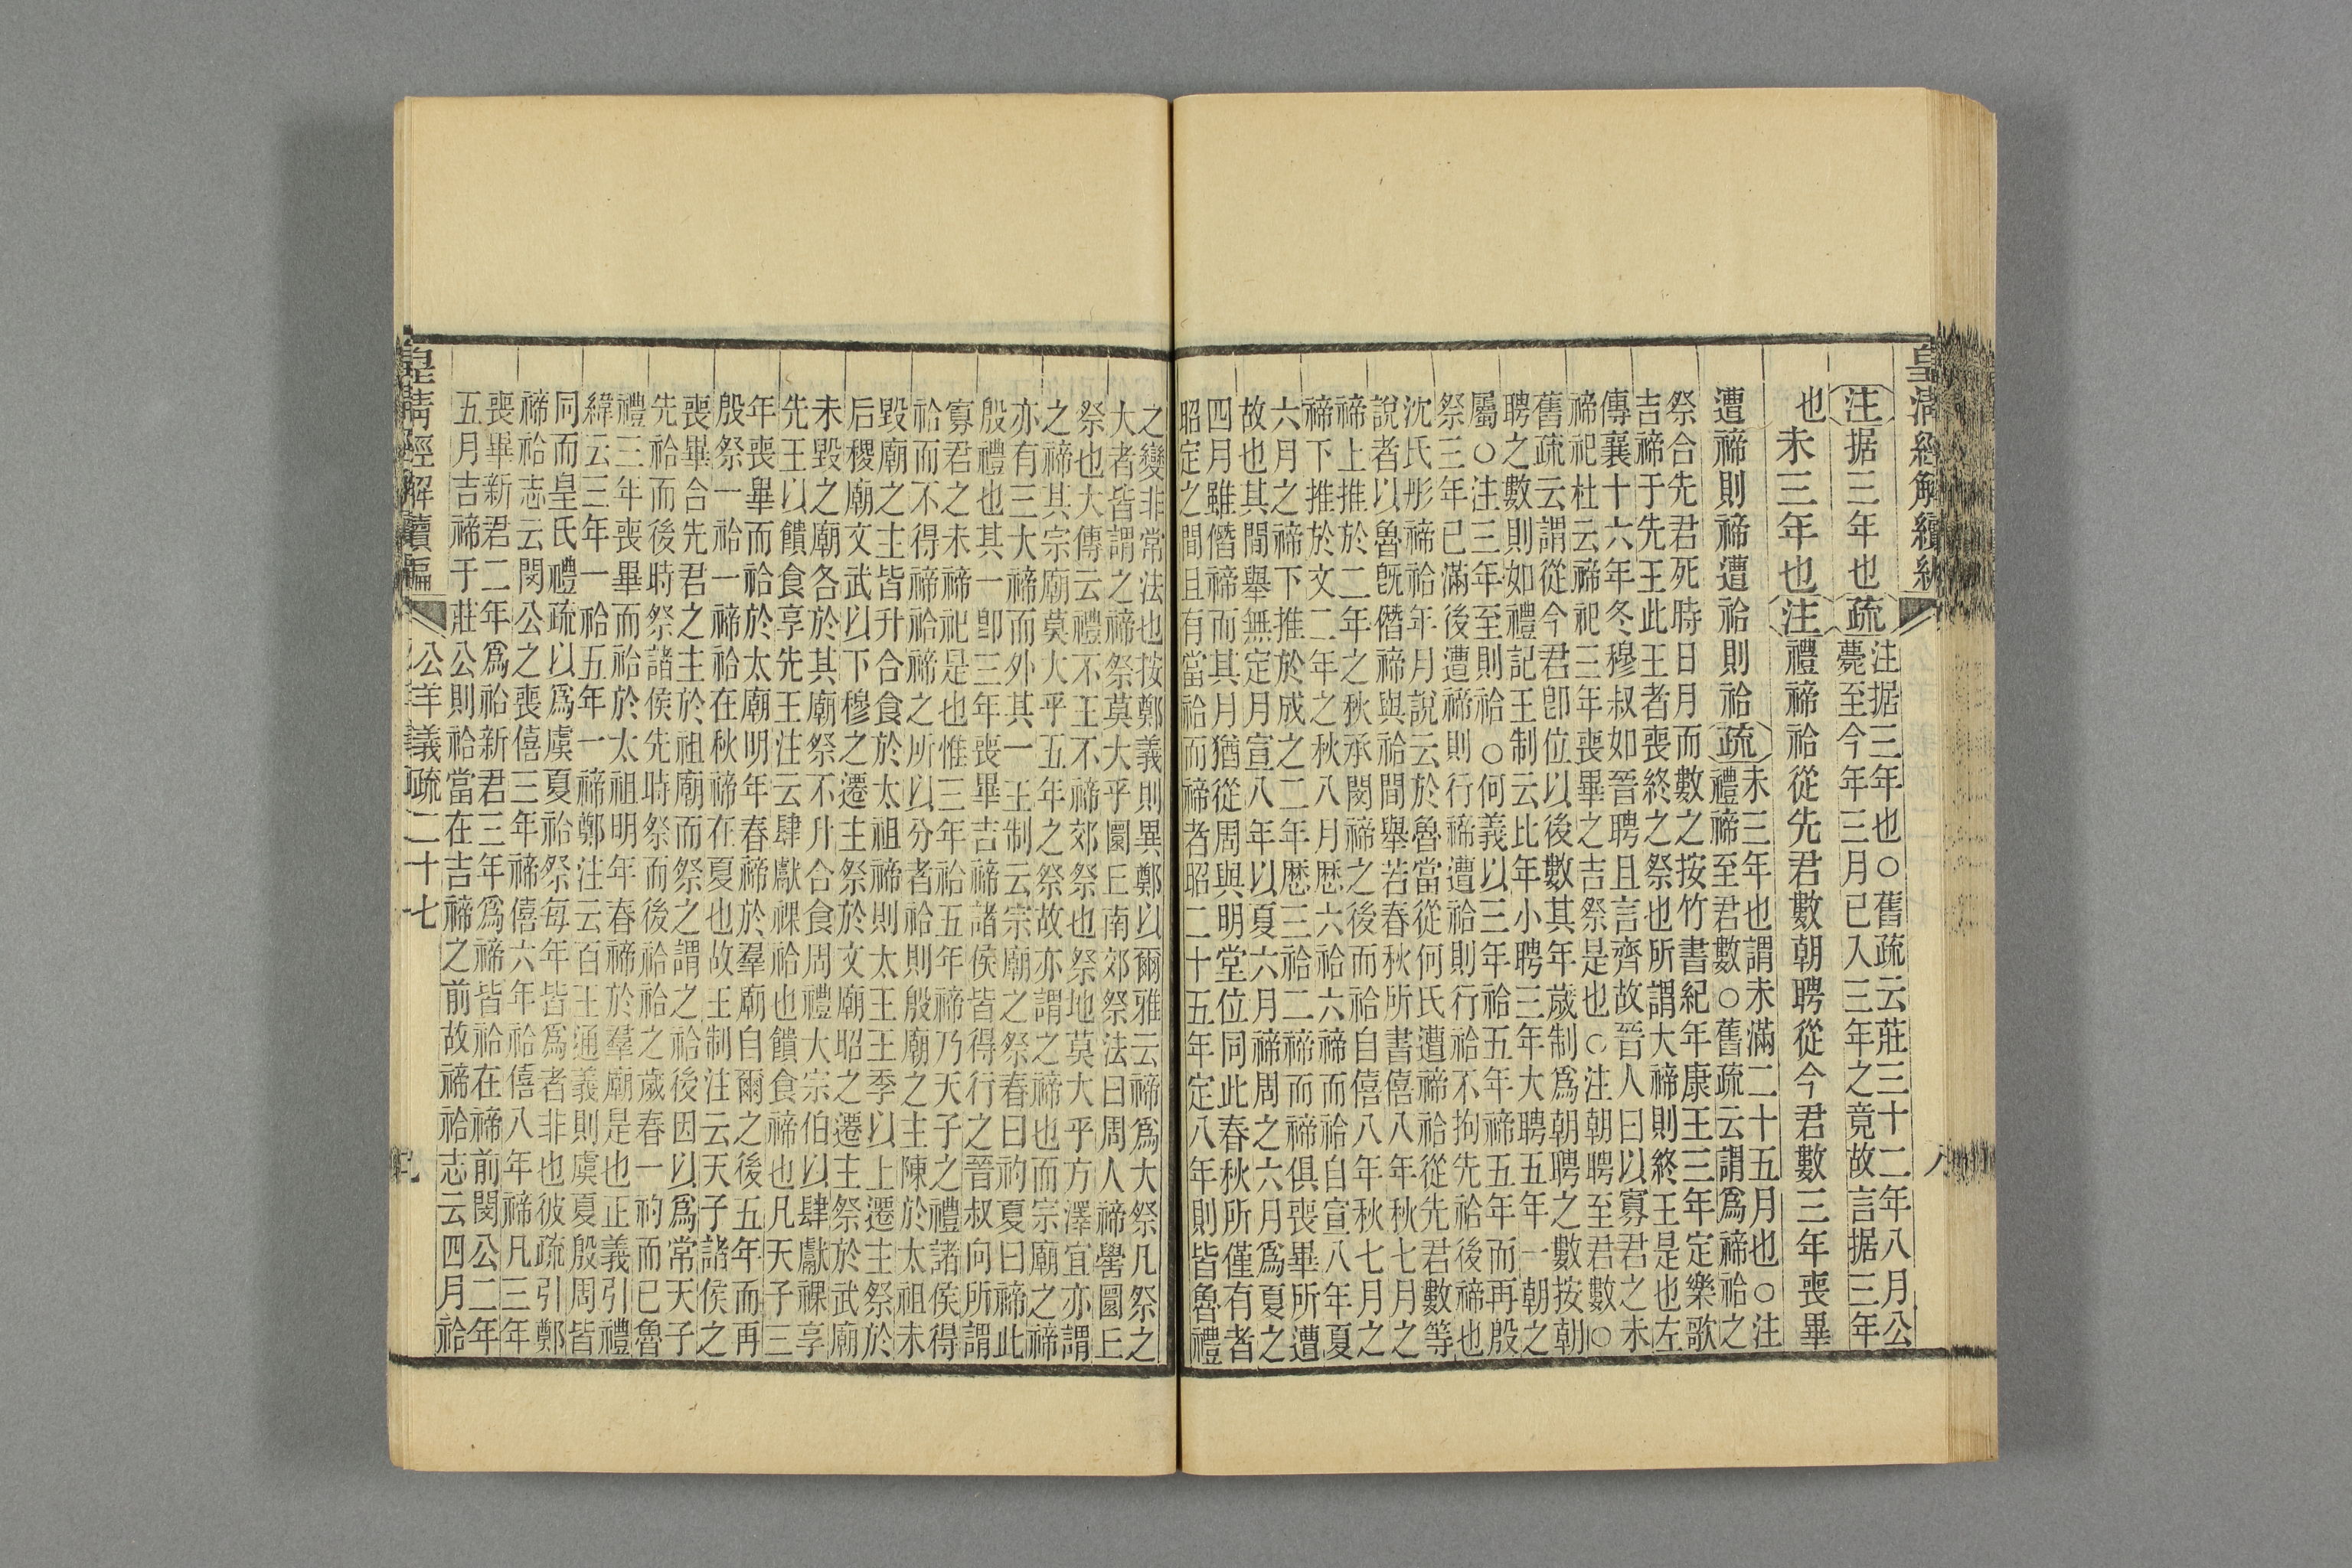 皇淸經解續編
注据三年也疏
注据三年也○舊疏云莊三十二年八月公
薨至今年三月已入三年之竟故言据三年
也未三年也注禮禘祫從先君數朝聘從今君數三年喪畢
遭禘則禘遭祫則祫疏
未三年也謂未滿二十五月也○注
禮禘至君數○舊疏云謂爲禘祫之
祭合先君死時日月而數之按竹書紀年康王三年定樂歌
吉禘于先王此王者喪終之祭也所謂大禘則終王是也左
傳襄十六年冬穆叔如晉聘且言齊故晉人曰以寡君之未
禘祀杜云禘祀三年喪畢之吉祭是也○注朝聘至君數○
舊疏云謂從今君卽位以後數其年歲制爲朝聘之數按朝
聘之數則如禮記王制云比年小聘三年大聘五年一朝之
屬○注三年至則祫○何義以三年祫五年禘五年而再殷
祭三年已滿後遭禘則行禘遭祫則行祫不拘先祫後禘也
沈氏彤禘祫年月說云於魯當從何氏遭禘祫從先君數等
說者以魯旣僭禘與祫間舉若春秋所書僖八年秋七月之
禘上推於二年之秋承閔禘之後而祫自僖八年秋七月之
禘下推於文二年之秋八月歷六祫六禘而祫自宣八年夏
六月之禘下推於成之二年歷三祫二禘而禘俱喪畢所遭
故也其間舉無定月宣八年以夏六月禘周之六月爲夏之
四月雖僭禘而其月猶從周與明堂位同此春秋所僅有者
昭定之間且有當祫而禘者昭二十五年定八年則皆魯禮
八
之變非常法也按鄭義則異鄭以爾雅云禘爲大祭凡祭之
大者皆謂之禘祭莫大乎圜丘南郊祭法曰周人禘嚳圜丘
祭也大傳云禮不王不禘郊祭也祭地莫大乎方澤宜亦謂
之禘其宗廟莫大乎五年之祭故亦謂之禘也而宗廟之禘
亦有三大禘而外其一王制云宗廟之祭春曰礿夏曰禘此
殷禮也其一卽三年喪畢吉禘諸侯皆得行之晉叔向所謂
寡君之未禘祀是也惟三年祫五年禘乃天子之禮諸侯得
祫而不得禘祫禘之所以分者祫則殷廟之主陳於太祖未
毀廟之主皆升合食於太祖禘則太王王季以上遷主祭於
后稷廟文武以下穆之遷主祭於文廟昭之遷主祭於武廟
未毀之廟各於其廟祭不升合食周禮大宗伯以肆獻祼享
先王以饋食享先王注云肆獻祼祫也饋食禘也凡天子三
年喪畢而祫於太廟明年春禘於羣廟自爾之後五年而再
殷祭一祫一禘祫在秋禘在夏也故王制注云天子諸侯之
喪畢合先君之主於祖廟而祭之謂之祫後因以爲常天子
先祫而後時祭諸侯先時祭而後祫祫之歲春一礿而已魯
禮三年喪畢而祫於太祖明年春禘於羣廟是也正義引禮
緯云三年一祫五年一禘鄭注云百王通義則虞夏殷周皆
同而皇氏禮疏以爲虞夏祫祭每年皆爲者非也彼疏引鄭
禘祫志云閔公之喪僖三年禘僖六年祫僖八年禘凡三年
喪畢新君二年爲祫新君三年爲禘皆祫在禘前閔公二年
五月吉禘于莊公則祫當在吉禘之前故禘祫志云四月祫
皇淸經解續編
公羊義疏二十七